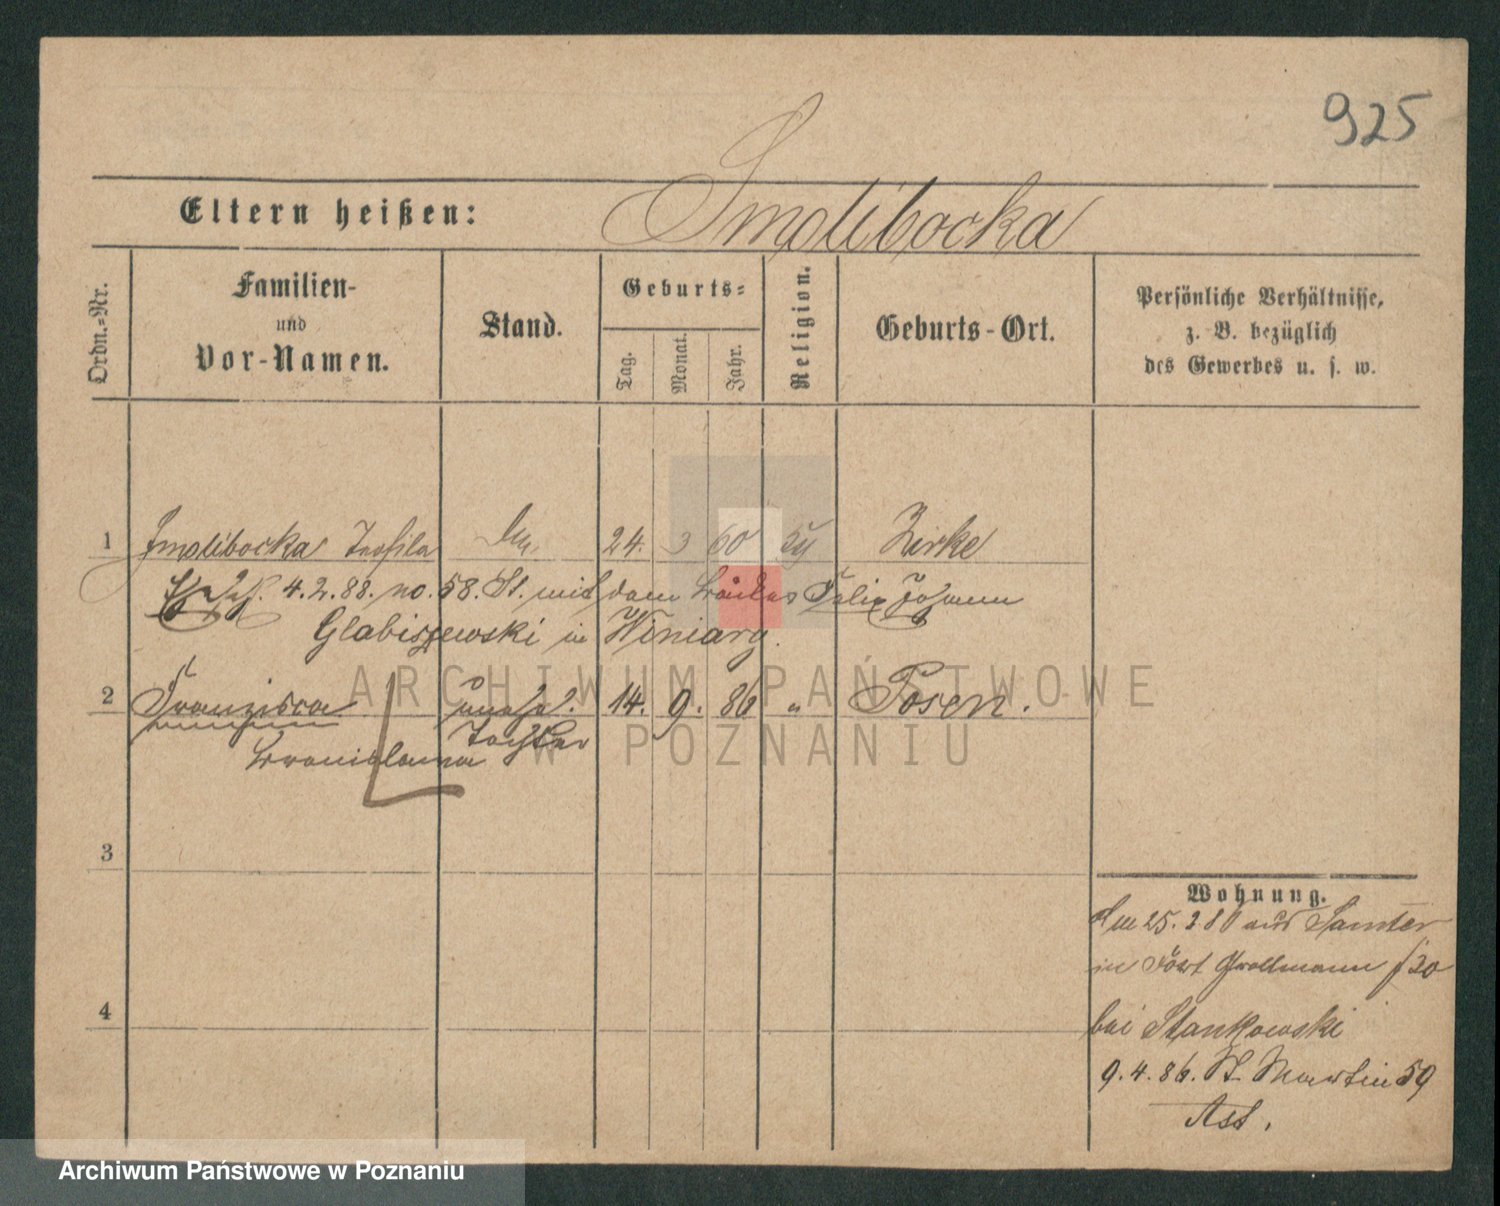 925
Eltern heißen: Smolibocka
Ordn.-Nr.
Familien-
und
Vor-Namen.
Stand.
Geburts-
Tag.
Monat.
Jahr.
Religion.
Geburts-Ort.
Persönliche Verhältnisse,
z. B. bezüglich
des Gewerbes u. s. w.
1 Smolibocka Teofila 24. 3 60 Zirke
4.2.88. no. 58. St. mit dem Bäcker Felix Johann
Glabiszewski in Winiary.
2 Franziska unehel. 14. 9. 86 " Posen.
Bronislawa Tochter
3
4
Wohnung.
25. 3 80 aus Samter
in Fort Grollmann
bei Stankowski
9. 4. 86. St. Martin 59
ARCHIWUM PAŃSTWOWE
W POZNANIU
Archiwum Państwowe w Poznaniu